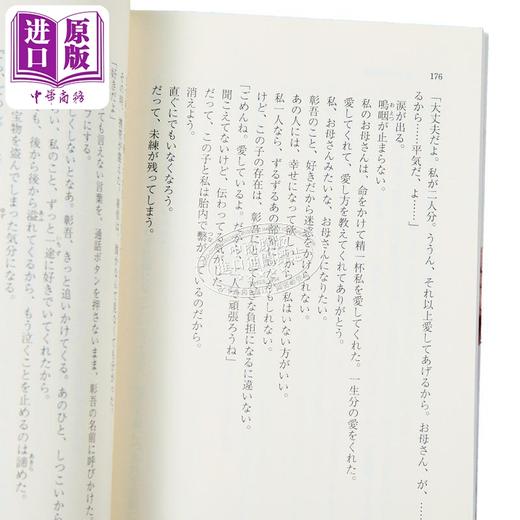 进口原版
中华商務
176
「大丈夫だよ。私が二人分。ううん、それ以上愛してあげるから。お母さん、が、……
るから……平気だ、よ……」
涙が出る。
嗚咽が止まらない。
私のお母さんは、命をかけて精一杯私を愛してくれた。一生分の愛をくれた。
愛してくれて、愛し方を教えてくれてありがとう。
私、お母さんみたいな、お母さんになりたい。
彰吾のこと、好きだから迷惑をかけられない。
あの人には、幸せになって欲しいから、私はいない方がいい。
私一人なら、ずるずるあの部屋にいたかもしれない。
けど、この子の存在は、彰吾にとって大きな負担になるに違いない。
「ごめんね。愛しているよ。だから、二人で頑張ろうね」
聞こえてないけど、伝わってる気がした。
だって、この子と私は胎内で繋がっているのだから。
消えよう。
直ぐにでもいなくなろう。
だって、未練が残ってしまう。
「好きだよ」
ても言えない言葉を、通話ボタンを押さないまま、彰吾の名前に呼びかけた。
フにする。
しくしないとなあ。彰吾、きっと追いかけてくる。あのひと、しつこいから
い、私のこと、ずっと一途に好きでいてくれたから。
も、後から後から溢れてくるから、もう泣くことを止めるのは諦めた。
宝物を盗んでしまった気分になる。